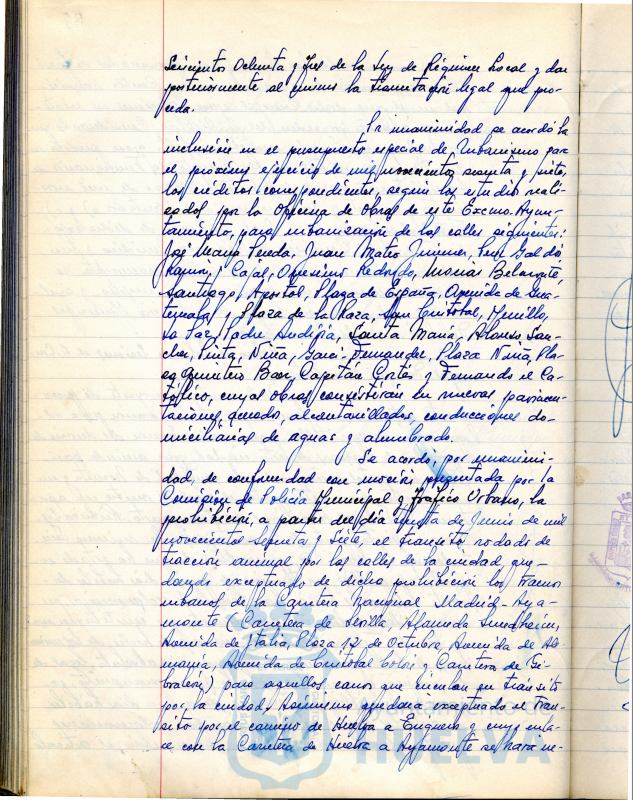 Seiscientos Ochenta y Tres de la Ley de Régimen Local y dar
posteriormente al mismo la tramitación legal que pro-
ceda.
Por unanimidad se acordó la
inclusión en el presupuesto especial de Urbanismo para
el próximo ejercicio de mil novecientos sesenta y siete,
los créditos correspondientes, según los estudios reali-
zados por la Oficina de Obras de este Excmo. Ayun-
tamiento, para urbanización de las calles siguientes:
José María Pereda, Juan Mateo Jiménez, Pérez Galdós,
Ramón y Cajal, Onésimo Redondo, Macías Belmonte,
Santiago Apóstol, Plaza de España, Avenida de Gua-
temala y Plaza de la Raza, San Cristobal, Murillo,
La Paz, Padre Andivia, Santa María, Alonso Sán-
chez, Pinta, Niña, Garci-Fernandez, Plaza Niña, Pla-
za Quintero Baez, Capitán Cortés y Fernando el Ca-
tólico, cuyas obras consistirán en nuevas pavimen-
taciones, acerados, alcantarillados, conducciones do-
miciliarias de aguas y alumbrado.
Se acordó, por unanimi-
dad, de conformidad con moción presentada por la
Comisión de Policía Municipal y Tráfico Urbano, la
prohibición, a partir del día treinta de Junio de mil
novecientos sesenta y siete, el tránsito rodado de
tracción animal por las calles de la ciudad, que-
dando exceptuado de dicha prohibición los tramos
urbanos de la Carretera Nacional Madrid-Aya-
monte (Carretera de Sevilla, Alameda Sundheim,
Avenida de Italia, Plaza 12 de Octubre, Avenida de Ale-
mania, Avenida de Cristobal Colón y Carretera de Gi-
braleón) para aquellos carros que circulan en tránsito
por la ciudad. Asimismo quedará exceptuado el tran-
sito por el camino de Huelva a y cuyo enla-
ce con la Carretera de Huelva a Ayamonte se hará ne-
HUELVA